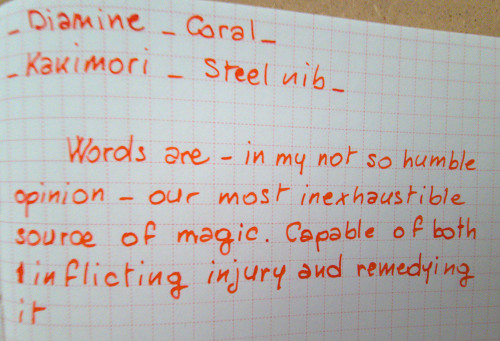 _ Diamine _ Coral _
_ Kakimori _ Steel nib _
Words are - in my not so humble
opinion - our most inexhaustible
source of magic. Capable of both
inflicting injury and remedying
it